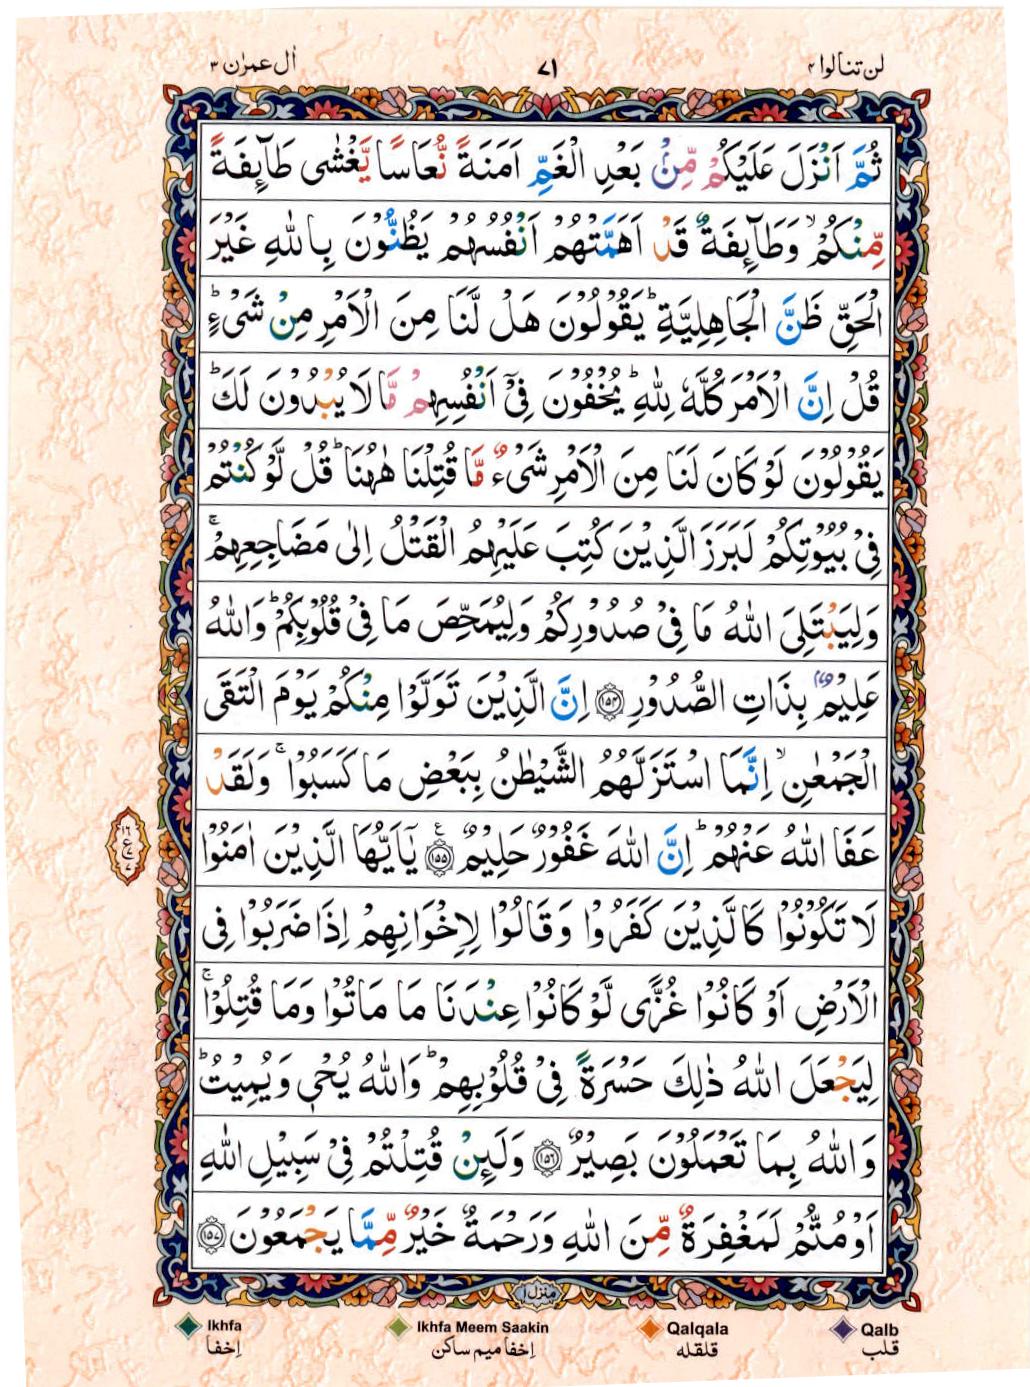 لن تنالوا ۴ ۷۱ اٰل عمرٰن ۳
ثُمَّ اَنْزَلَ عَلَيْكُمْ مِّنْۢ بَعْدِ الْغَمِّ اَمَنَةً نُّعَاسًا يَّغْشٰى طَآئِفَةً
مِّنْكُمْ ۙ وَطَآئِفَةٌ قَدْ اَهَمَّتْهُمْ اَنْفُسُهُمْ يَظُنُّوْنَ بِاللّٰهِ غَيْرَ
الْحَقِّ ظَنَّ الْجَاهِلِيَّةِ ؕ يَقُوْلُوْنَ هَلْ لَّنَا مِنَ الْاَمْرِ مِنْ شَىْءٍ ؕ
قُلْ اِنَّ الْاَمْرَ كُلَّهٗ لِلّٰهِ ؕ يُخْفُوْنَ فِىْۤ اَنْفُسِهِمْ مَّا لَا يُبْدُوْنَ لَكَ ؕ
يَقُوْلُوْنَ لَوْ كَانَ لَنَا مِنَ الْاَمْرِ شَىْءٌ مَّا قُتِلْنَا هٰهُنَا ؕ قُلْ لَّوْ كُنْتُمْ
فِىْ بُيُوْتِكُمْ لَبَرَزَ الَّذِيْنَ كُتِبَ عَلَيْهِمُ الْقَتْلُ اِلٰى مَضَاجِعِهِمْ ۚ
وَلِيَبْتَلِىَ اللّٰهُ مَا فِىْ صُدُوْرِكُمْ وَلِيُمَحِّصَ مَا فِىْ قُلُوْبِكُمْ ؕ وَاللّٰهُ
عَلِيْمٌۢ بِذَاتِ الصُّدُوْرِ ﴿۱۵۴﴾ اِنَّ الَّذِيْنَ تَوَلَّوْا مِنْكُمْ يَوْمَ الْتَقَى
الْجَمْعٰنِ ۙ اِنَّمَا اسْتَزَلَّهُمُ الشَّيْطٰنُ بِبَعْضِ مَا كَسَبُوْا ۚ وَلَقَدْ
عَفَا اللّٰهُ عَنْهُمْ ؕ اِنَّ اللّٰهَ غَفُوْرٌ حَلِيْمٌ ﴿۱۵۵﴾ ع يٰۤاَيُّهَا الَّذِيْنَ اٰمَنُوْا
لَا تَكُوْنُوْا كَالَّذِيْنَ كَفَرُوْا وَقَالُوْا لِاِخْوَانِهِمْ اِذَا ضَرَبُوْا فِى
الْاَرْضِ اَوْ كَانُوْا غُزًّى لَّوْ كَانُوْا عِنْدَنَا مَا مَاتُوْا وَمَا قُتِلُوْا ۚ
لِيَجْعَلَ اللّٰهُ ذٰلِكَ حَسْرَةً فِىْ قُلُوْبِهِمْ ؕ وَاللّٰهُ يُحْىٖ وَيُمِيْتُ ؕ
وَاللّٰهُ بِمَا تَعْمَلُوْنَ بَصِيْرٌ ﴿۱۵۶﴾ وَلَئِنْ قُتِلْتُمْ فِىْ سَبِيْلِ اللّٰهِ
اَوْ مُتُّمْ لَمَغْفِرَةٌ مِّنَ اللّٰهِ وَرَحْمَةٌ خَيْرٌ مِّمَّا يَجْمَعُوْنَ ﴿۱۵۷﴾
منزل ۱
Ikhfa Ikhfa Meem Saakin Qalqala Qalb
اِخفا اِخفا میم ساکن قلقله قلب